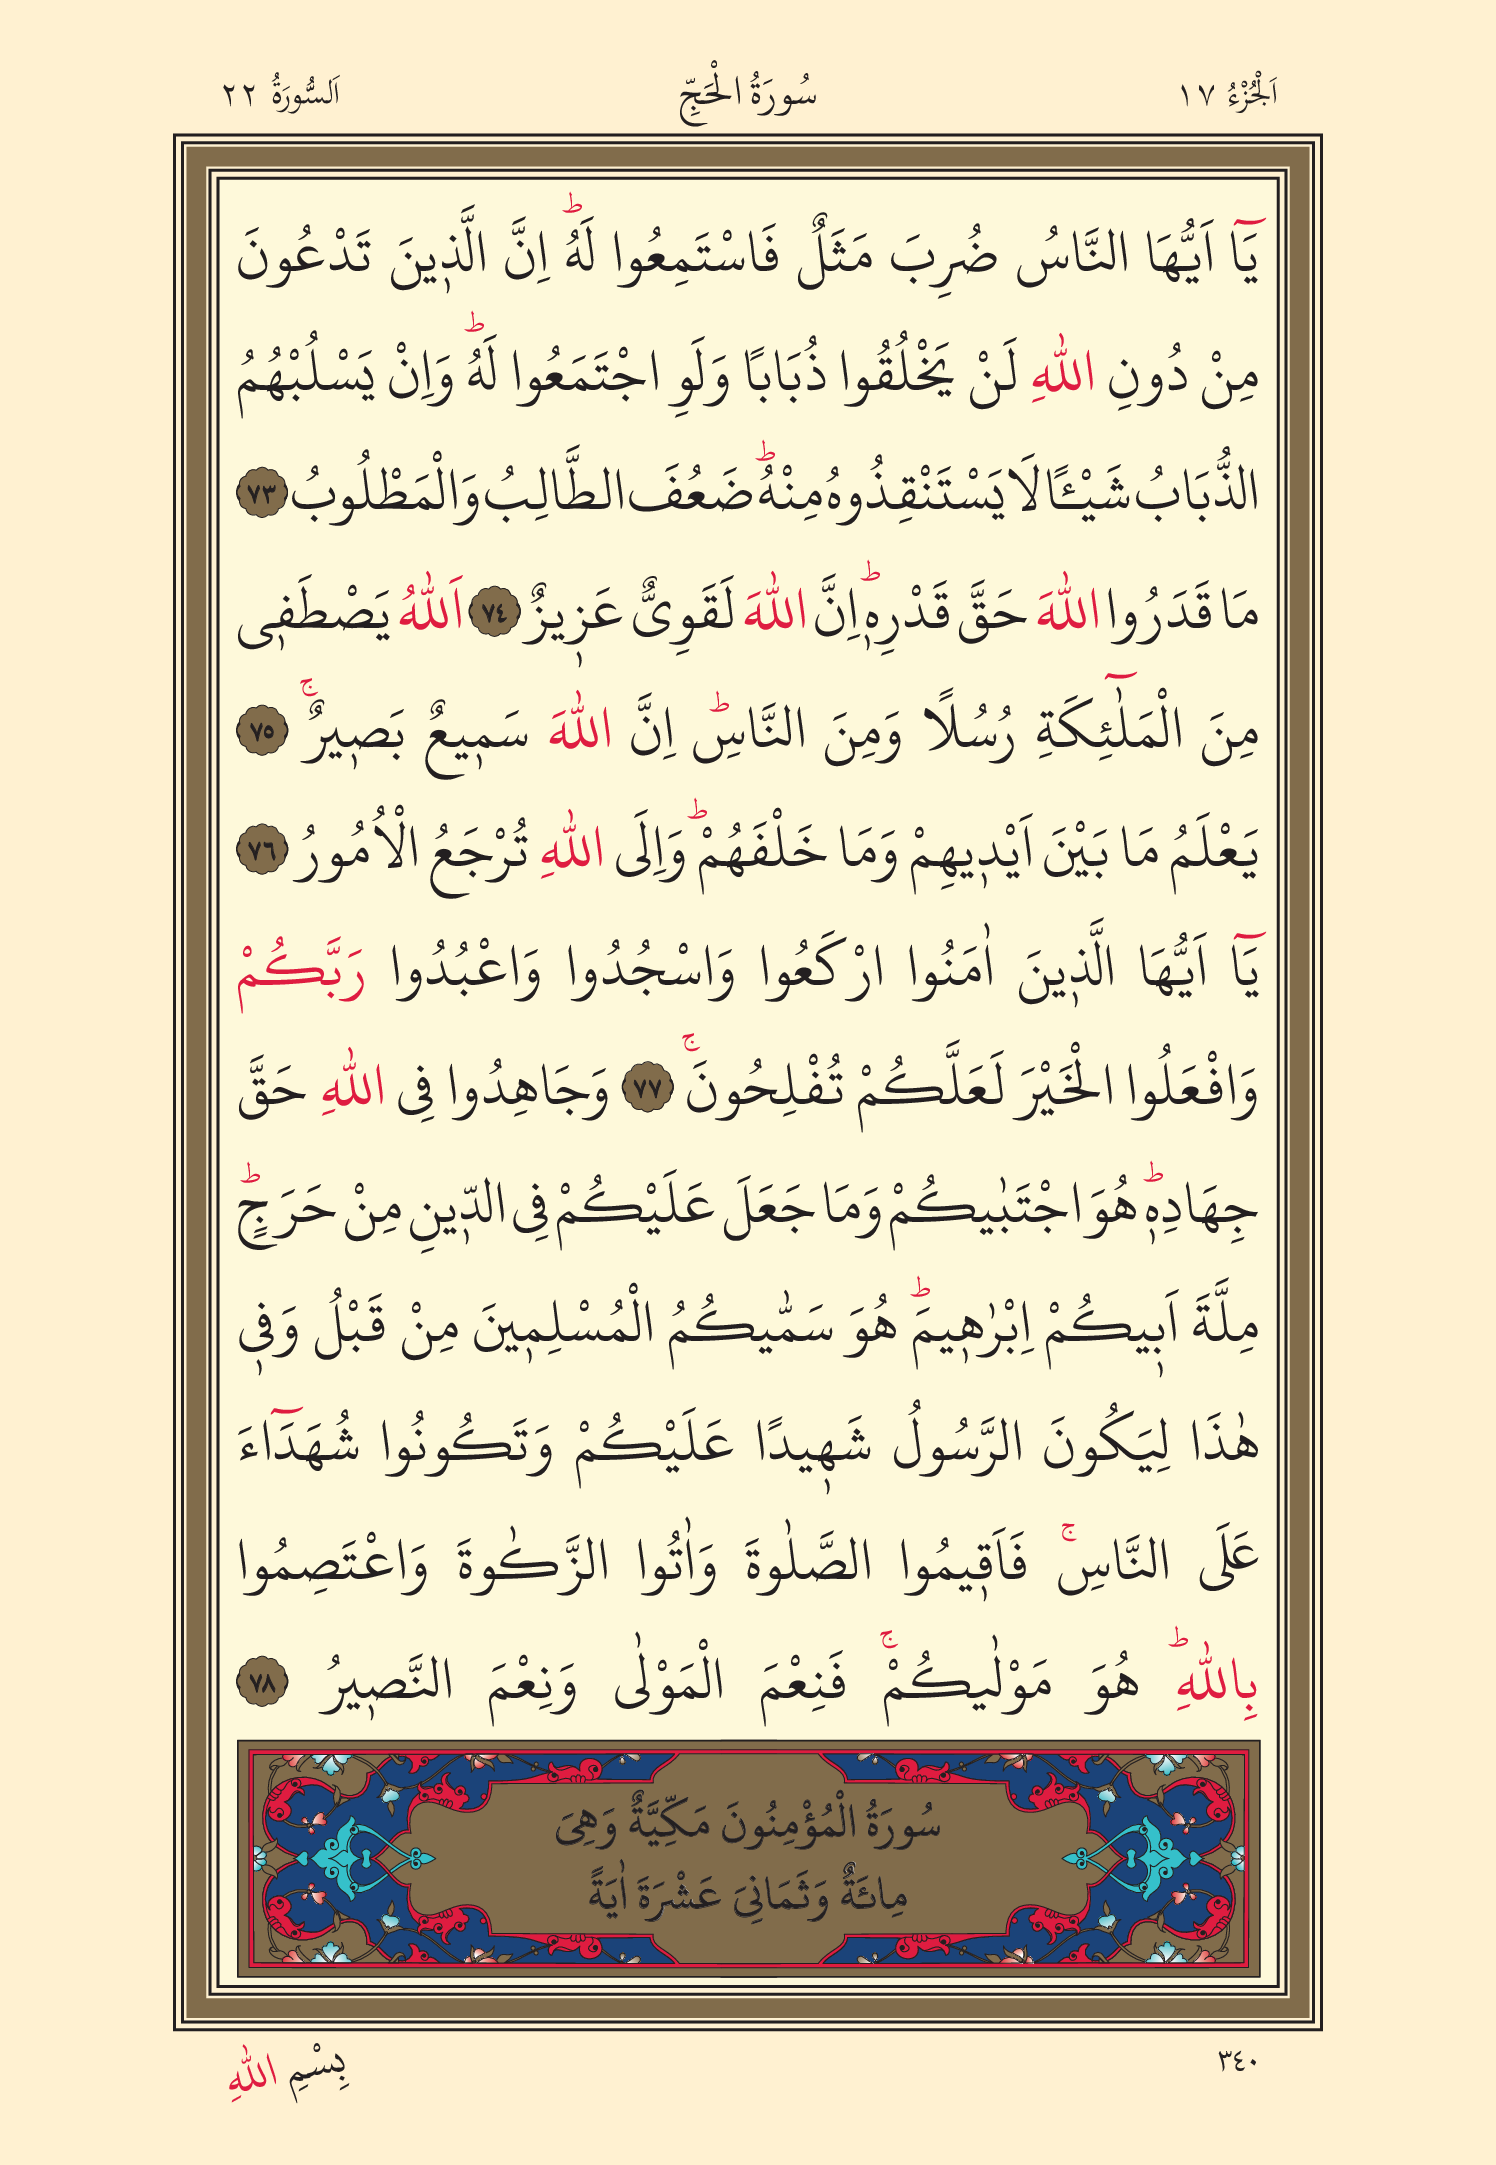 اَلْجُزْءُ ١٧ سُورَةُ الْحَجِّ اَلسُّورَةُ ٢٢
يَٓا اَيُّهَا النَّاسُ ضُرِبَ مَثَلٌ فَاسْتَمِعُوا لَهُۜ اِنَّ الَّذ۪ينَ تَدْعُونَ
مِنْ دُونِ اللّٰهِ لَنْ يَخْلُقُوا ذُبَابًا وَلَوِ اجْتَمَعُوا لَهُۜ وَاِنْ يَسْلُبْهُمُ
الذُّبَابُ شَيْـًٔا لَا يَسْتَنْقِذُوهُ مِنْهُۜ ضَعُفَ الطَّالِبُ وَالْمَطْلُوبُ ٧٣
مَا قَدَرُوا اللّٰهَ حَقَّ قَدْرِه۪ۜ اِنَّ اللّٰهَ لَقَوِىٌّ عَز۪يزٌ ٧٤ اَللّٰهُ يَصْطَف۪ى
مِنَ الْمَلٰٓئِكَةِ رُسُلًا وَمِنَ النَّاسِۜ اِنَّ اللّٰهَ سَم۪يعٌ بَص۪يرٌۚ ٧٥
يَعْلَمُ مَا بَيْنَ اَيْد۪يهِمْ وَمَا خَلْفَهُمْۜ وَاِلَى اللّٰهِ تُرْجَعُ الْاُمُورُ ٧٦
يَٓا اَيُّهَا الَّذ۪ينَ اٰمَنُوا ارْكَعُوا وَاسْجُدُوا وَاعْبُدُوا رَبَّكُمْ
وَافْعَلُوا الْخَيْرَ لَعَلَّكُمْ تُفْلِحُونَۚ ٧٧ وَجَاهِدُوا فِى اللّٰهِ حَقَّ
جِهَادِه۪ۜ هُوَ اجْتَبٰيكُمْ وَمَا جَعَلَ عَلَيْكُمْ فِى الدّ۪ينِ مِنْ حَرَجٍۜ
مِلَّةَ اَب۪يكُمْ اِبْرٰه۪يمَۜ هُوَ سَمّٰيكُمُ الْمُسْلِم۪ينَ مِنْ قَبْلُ وَف۪ى
هٰذَا لِيَكُونَ الرَّسُولُ شَه۪يدًا عَلَيْكُمْ وَتَكُونُوا شُهَدَٓاءَ
عَلَى النَّاسِۚ فَاَق۪يمُوا الصَّلٰوةَ وَاٰتُوا الزَّكٰوةَ وَاعْتَصِمُوا
بِاللّٰهِۜ هُوَ مَوْلٰيكُمْۚ فَنِعْمَ الْمَوْلٰى وَنِعْمَ النَّص۪يرُ ٧٨
سُورَةُ الْمُؤْمِنُونَ مَكِّيَّةٌ وَهِىَ
مِائَةٌ وَثَمَانِىَ عَشْرَةَ اٰيَةً
٣٤٠ بِسْمِ اللّٰهِ